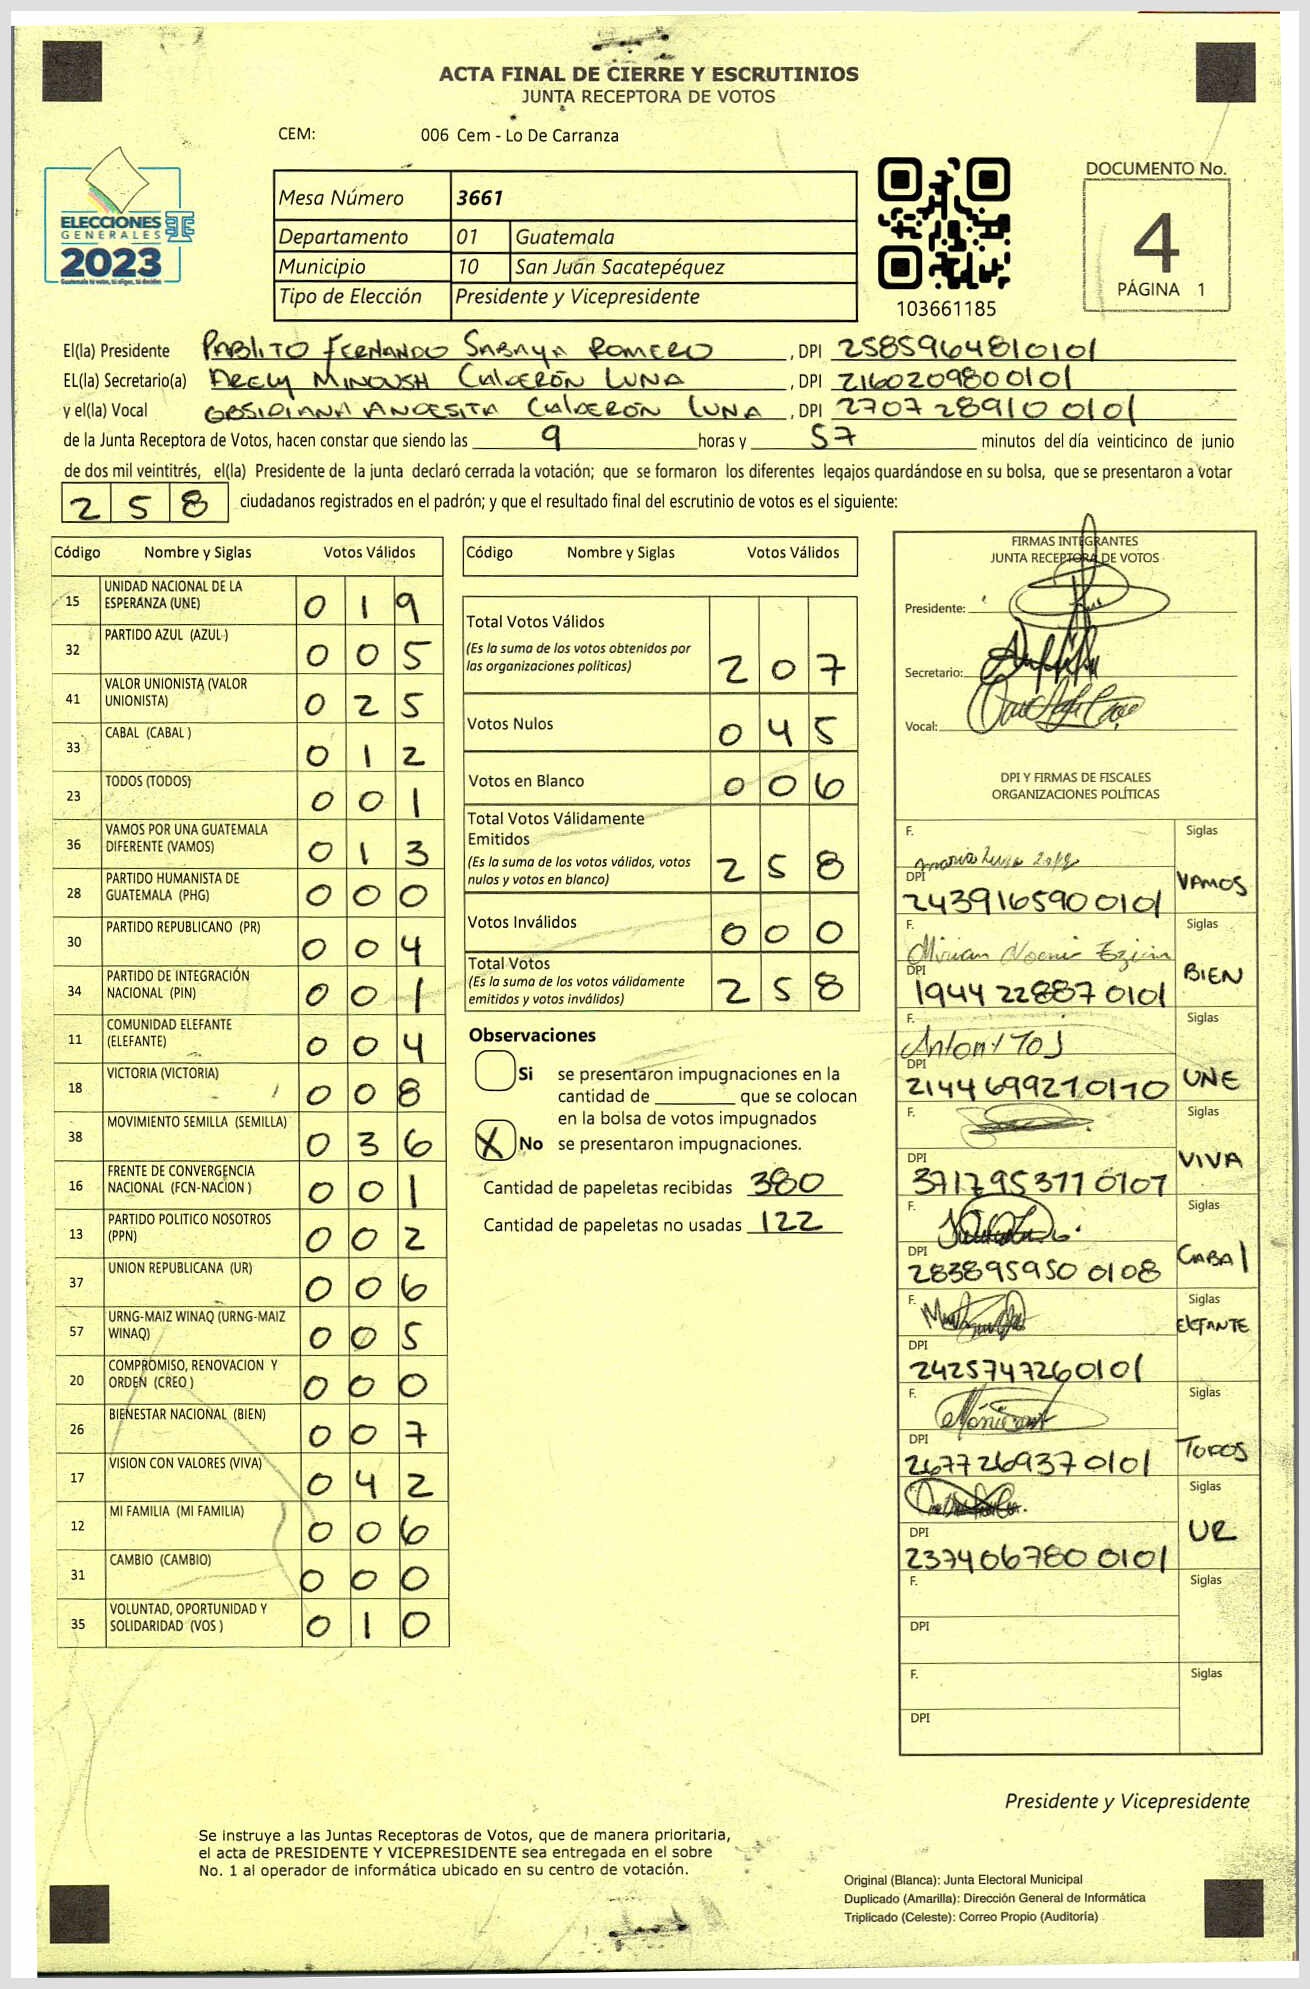 ACTA FINAL DE CIERRE Y ESCRUTINIOS
JUNTA RECEPTORA DE VOTOS
CEM: 006 Cem - Lo De Carranza
ELECCIONES
GENERALES
2023
Guatemala tu votas, tú eliges, tú decides
Mesa Número 3661
Departamento 01 Guatemala
Municipio 10 San Juan Sacatepéquez
Tipo de Elección Presidente y Vicepresidente
103661185
DOCUMENTO No.
4
PÁGINA 1
El(la) Presidente PABLITO FERNANDO SABAYA ROMERO, DPI 2585964810101
EL(la) Secretario(a) ARELY MINOUSH CALDERÓN LUNA, DPI 2160209800101
y el(la) Vocal OBSIDIANA ANDESITA CALDERÓN LUNA, DPI 2707289100101
de la Junta Receptora de Votos, hacen constar que siendo las 9 horas y 57 minutos del día veinticinco de junio
de dos mil veintitrés, el(la) Presidente de la junta declaró cerrada la votación; que se formaron los diferentes legajos guardándose en su bolsa, que se presentaron a votar
258 ciudadanos registrados en el padrón; y que el resultado final del escrutinio de votos es el siguiente:
Código Nombre y Siglas Votos Válidos
15 UNIDAD NACIONAL DE LA ESPERANZA (UNE) 019
32 PARTIDO AZUL (AZUL) 005
41 VALOR UNIONISTA (VALOR UNIONISTA) 025
33 CABAL (CABAL ) 012
23 TODOS (TODOS) 001
36 VAMOS POR UNA GUATEMALA DIFERENTE (VAMOS) 013
28 PARTIDO HUMANISTA DE GUATEMALA (PHG) 000
30 PARTIDO REPUBLICANO (PR) 004
34 PARTIDO DE INTEGRACIÓN NACIONAL (PIN) 001
11 COMUNIDAD ELEFANTE (ELEFANTE) 004
18 VICTORIA (VICTORIA) 008
38 MOVIMIENTO SEMILLA (SEMILLA) 036
16 FRENTE DE CONVERGENCIA NACIONAL (FCN-NACION ) 001
13 PARTIDO POLITICO NOSOTROS (PPN) 002
37 UNION REPUBLICANA (UR) 006
57 URNG-MAIZ WINAQ (URNG-MAIZ WINAQ) 005
20 COMPROMISO, RENOVACION Y ORDEN (CREO ) 000
26 BIENESTAR NACIONAL (BIEN) 007
17 VISION CON VALORES (VIVA) 042
12 MI FAMILIA (MI FAMILIA) 006
31 CAMBIO (CAMBIO) 000
35 VOLUNTAD, OPORTUNIDAD Y SOLIDARIDAD (VOS ) 010
Código Nombre y Siglas Votos Válidos
Total Votos Válidos
(Es la suma de los votos obtenidos por
las organizaciones políticas) 207
Votos Nulos 045
Votos en Blanco 006
Total Votos Válidamente
Emitidos
(Es la suma de los votos válidos, votos
nulos y votos en blanco) 258
Votos Inválidos 000
Total Votos
(Es la suma de los votos válidamente
emitidos y votos inválidos) 258
Observaciones
Si se presentaron impugnaciones en la
cantidad de ________ que se colocan
en la bolsa de votos impugnados
X No se presentaron impugnaciones.
Cantidad de papeletas recibidas 380
Cantidad de papeletas no usadas 122
FIRMAS INTEGRANTES
JUNTA RECEPTORA DE VOTOS
Presidente:
Secretario:
Vocal:
DPI Y FIRMAS DE FISCALES
ORGANIZACIONES POLÍTICAS
F. Siglas
DPI 2439165900101 VAMOS
F. Mirian Noemi Siglas
DPI 1944228870101 BIEN
F. Antony Toj Siglas
DPI 2144699270110 UNE
F. Siglas
DPI 3717953770107 VIVA
F. Siglas
DPI 2838959500108 CABAl
F. Siglas
DPI 2425747260101 ElEFANTE
F. Siglas
DPI 2677269370101 TODOS
F. Siglas
DPI 2374067800101 UR
F. Siglas
DPI
F. Siglas
DPI
Presidente y Vicepresidente
Se instruye a las Juntas Receptoras de Votos, que de manera prioritaria,
el acta de PRESIDENTE Y VICEPRESIDENTE sea entregada en el sobre
No. 1 al operador de informática ubicado en su centro de votación.
Original (Blanca): Junta Electoral Municipal
Duplicado (Amarilla): Dirección General de Informática
Triplicado (Celeste): Correo Propio (Auditoría)